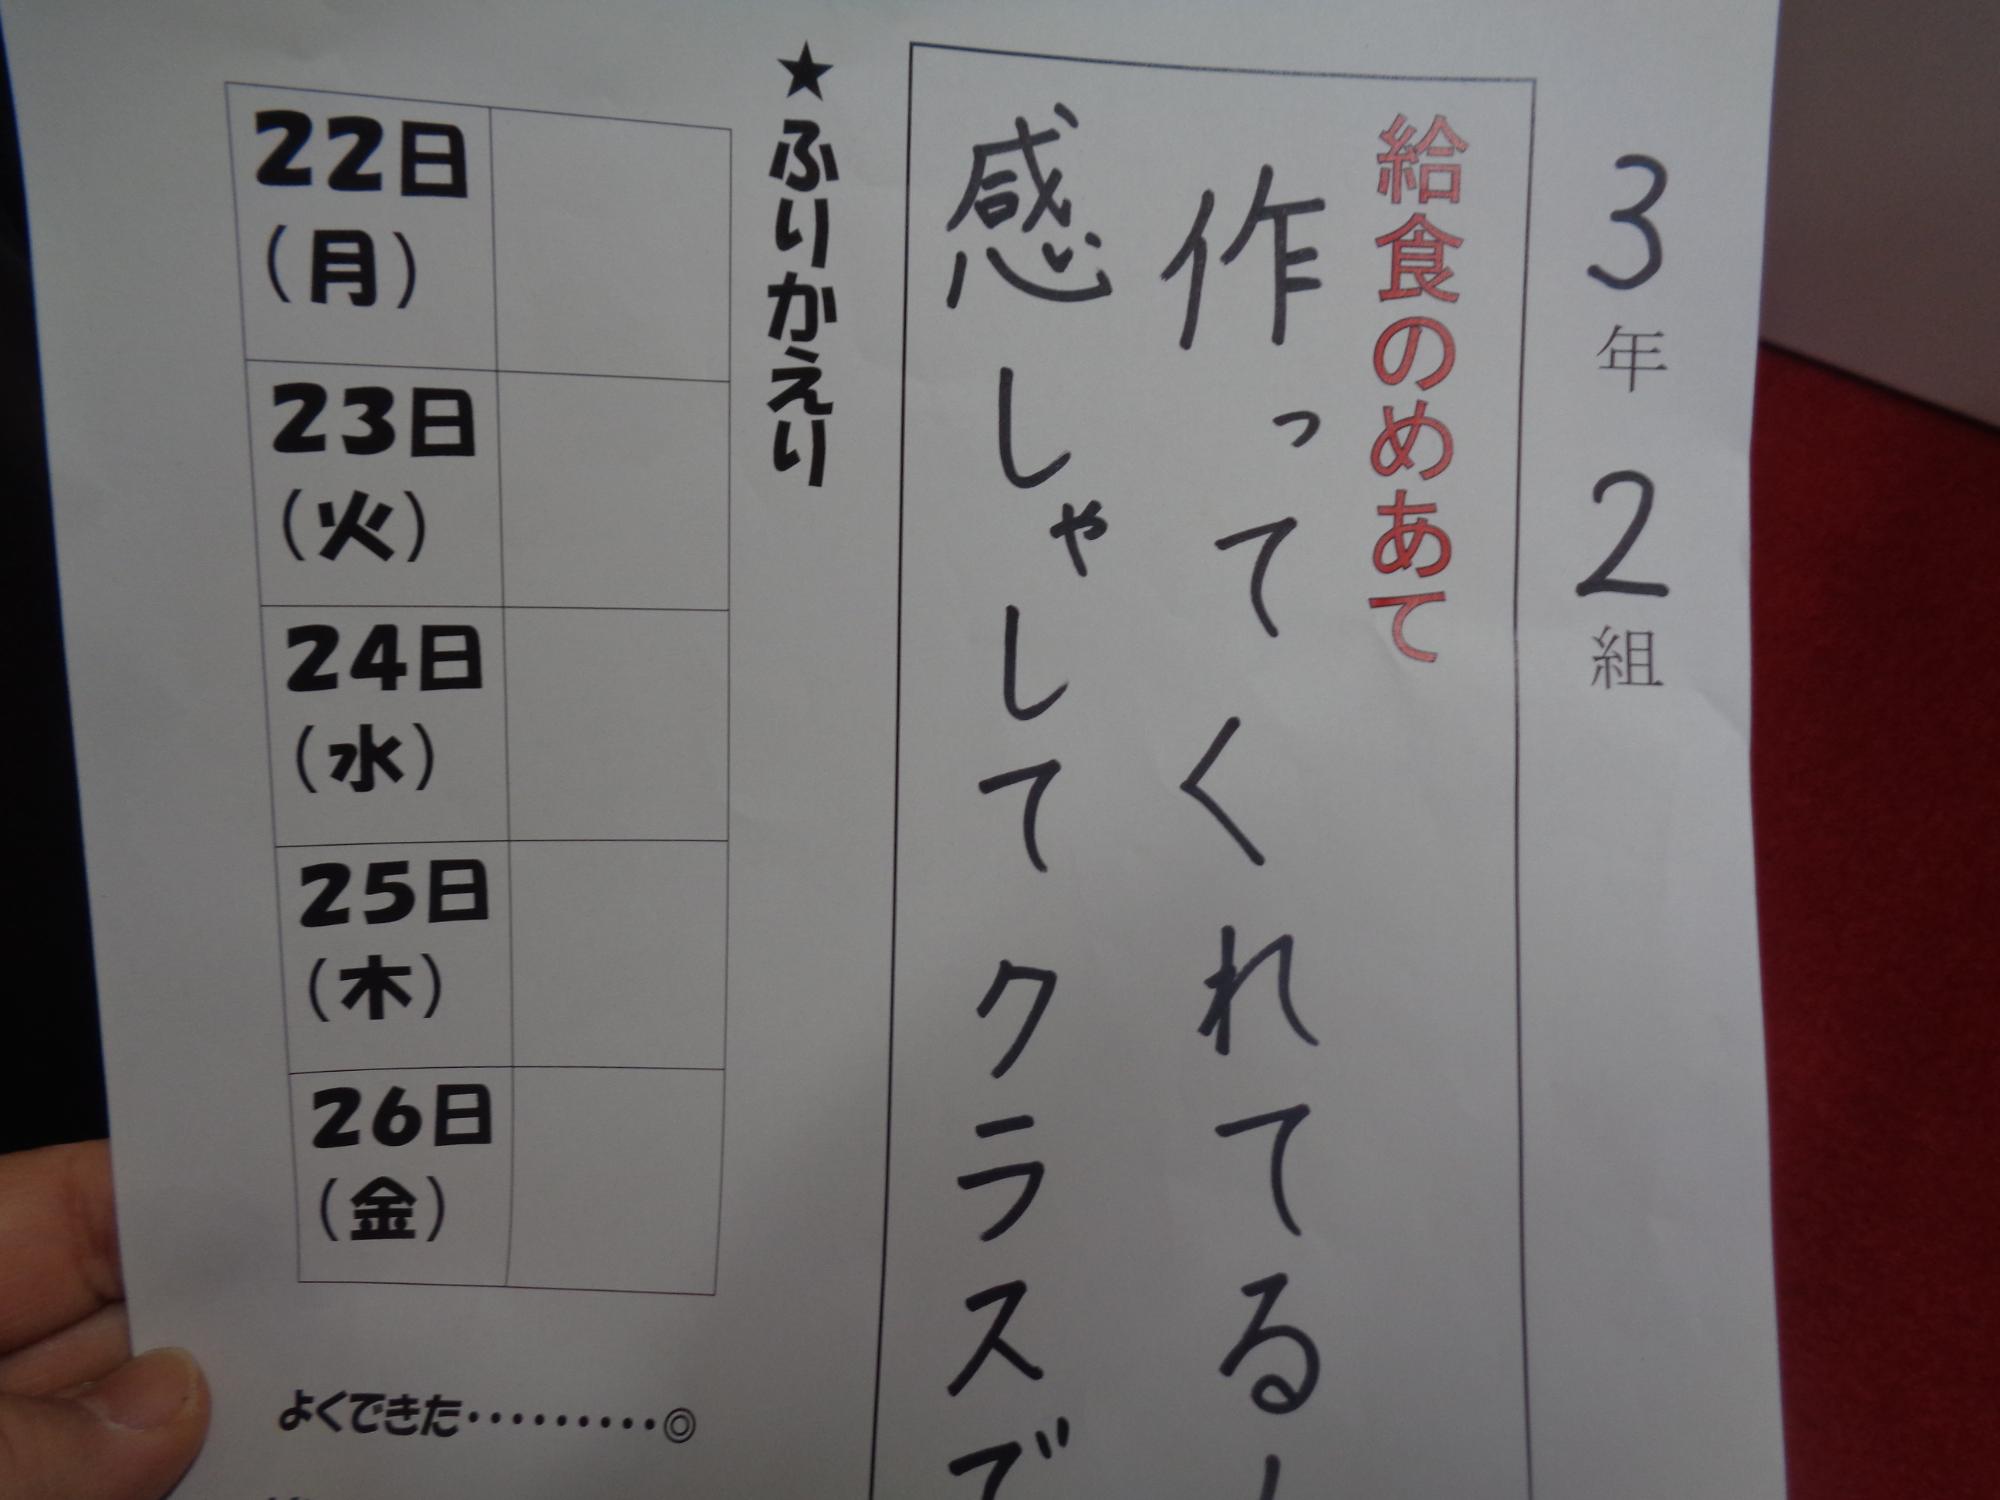 3年2組
給食のめあて
作ってくれてる
感しゃしてクラスで
★ふりかえり
22日
(月)
23日
(火)
24日
(水)
25日
(木)
26日
(金)
よくできた・・・・・・・・・◎